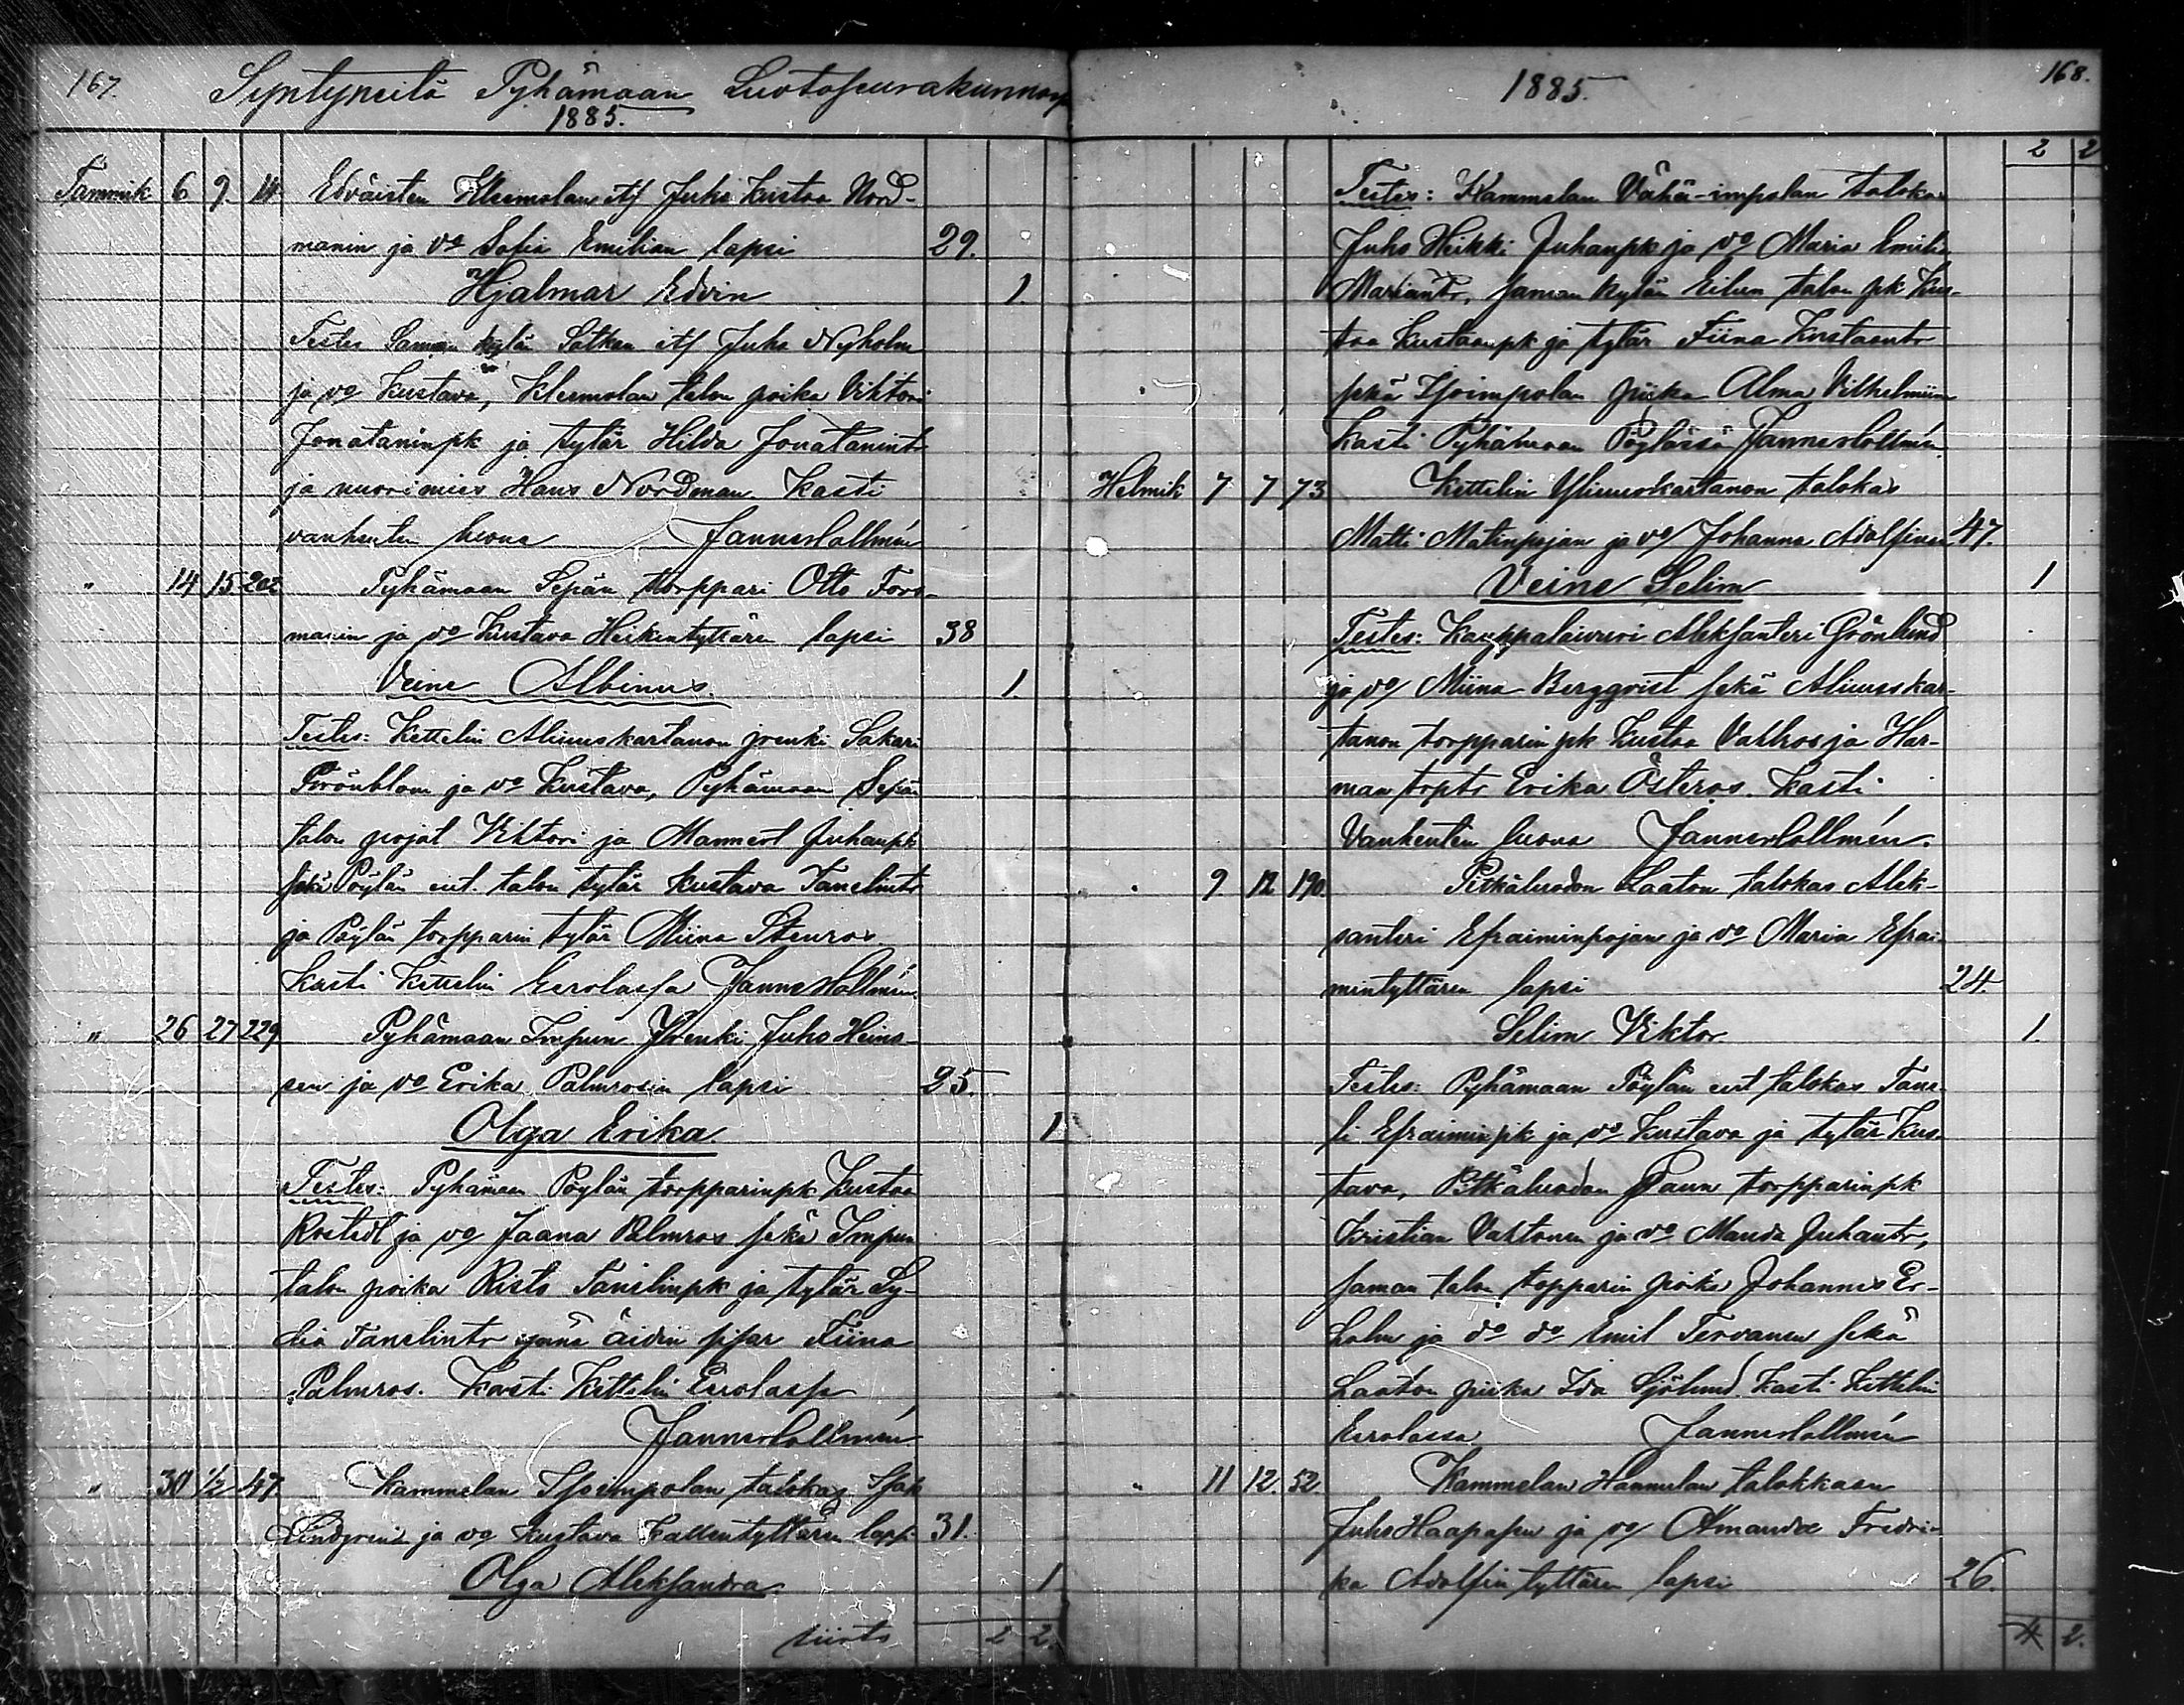 167. Syntyneitä Pyhämaan Luotoseurakunnasa
1885.
Tammik 6 9. 14 Edväisten Kleemolan itl Juho Kustaa Nord-
manin ja vo Sofia Emilian lapsi 29.
Hjalmar Edvin 1.
Testes Saman kylän Satkan itl Juho Nyholm
ja vo Kustava, Kleemolan talon poika Vihtori
Jonataninpk ja tytär Hilda Jonatanintr
ja nuorimies Hans Nordman Kasti
vanhenten luona Janne Hallmén
" 14 15 202 Pyhämaan Sepän torppari Otto Fors-
manin ja vo Kustava Heikintyttären lapsi 38
Veine Albinus 1.
Testes: Kettelin Alinenkartanon prenki Sakari
Grönblom ja vo Kustava, Pyhämaan Sepän
talon pojat Viktori ja Mannert Juhanpk
sekä Pöylän ent. talon tytär Kustava Tanelintr
ja Pöylän torpparin tytär Miina Stenros.
Kasti Kettelin Eerolassa Janne Hallmén
" 26 27 229 Pyhämaan Impun Prenki Juho Heino-
sen ja vo Erika Palmrosin lapsi 25.
Olga Erika 1
Testes: Pyhämaan Pöylän torpparinpk Kustaa
Rostedt ja vo Jaana Palmros sekä Impun
talon poika Risto Tanelinpk ja tytär Ly-
dia Tanelintr äidin sisar Fiina
Palmros. Kasti Kettelin Eerolassa
Janne Hallmén
" 30 1/2 47. Kammelan Isoimpolan talokas Isak
Lindgrenin ja vo Kustava Kallentyttären lapsi 31.
Olga Aleksandra 1
siirto 2 2.
1885. 168.
2 2
Testes: Kammelan Vähä-impolan talokas
Juho Heikki Juhanpk ja vo Maria Emilia
Mariantr, saman kylän Eilun talon pk Kus-
taa Kustaanpk ja tytär Fiina Kustaantr
sekä Isoimpolan piika Alma Vilhelmiina
Kasti Pyhämaan Pöylässä Janne Hallmén
Helmik 7 7 73 Kettelin Ylinenkartanon talokas
Matti Matinpojan ja vo Johanna Adolfinan 47.
Veine Selim 1
Testes: Kauppalaivuri Aleksanteri Grönlund
ja vo Miina Bergqvist sekä Alinenkar-
tanon torpparin pk Kustaa Valtros ja Har-
man trptr Erika Österos. Kasti
Vanhenten luona Janne Hallmén.
" 9. 12 190. Pitkäluodon Laaton talokas Alek-
santeri Efraiminpojan ja vo Maria Efrai-
mintyttären lapsi 24.
Selim Viktor. 1.
Testes: Pyhämaan Pöylän ent talokas Tane-
li Efraiminpk ja vo Kustava ja tytär Kus-
tava, Pitkäluodon Paun torpparinpk
Kristian Vahtonen ja vo Manda Juhantr,
saman talon torpparin poika Johannes Ek-
holm ja do do Emil Tervanen sekä
Laaton piika Ida Sjölund. Kasti Kettelin
Eerolassa Janne Hallmén
" 11 12. 52 Kammelan Hannulan talokkaan
Juho Haapasen ja vo Amanda Fredri-
ka Adolfin tyttären lapsi 26.
4 2.